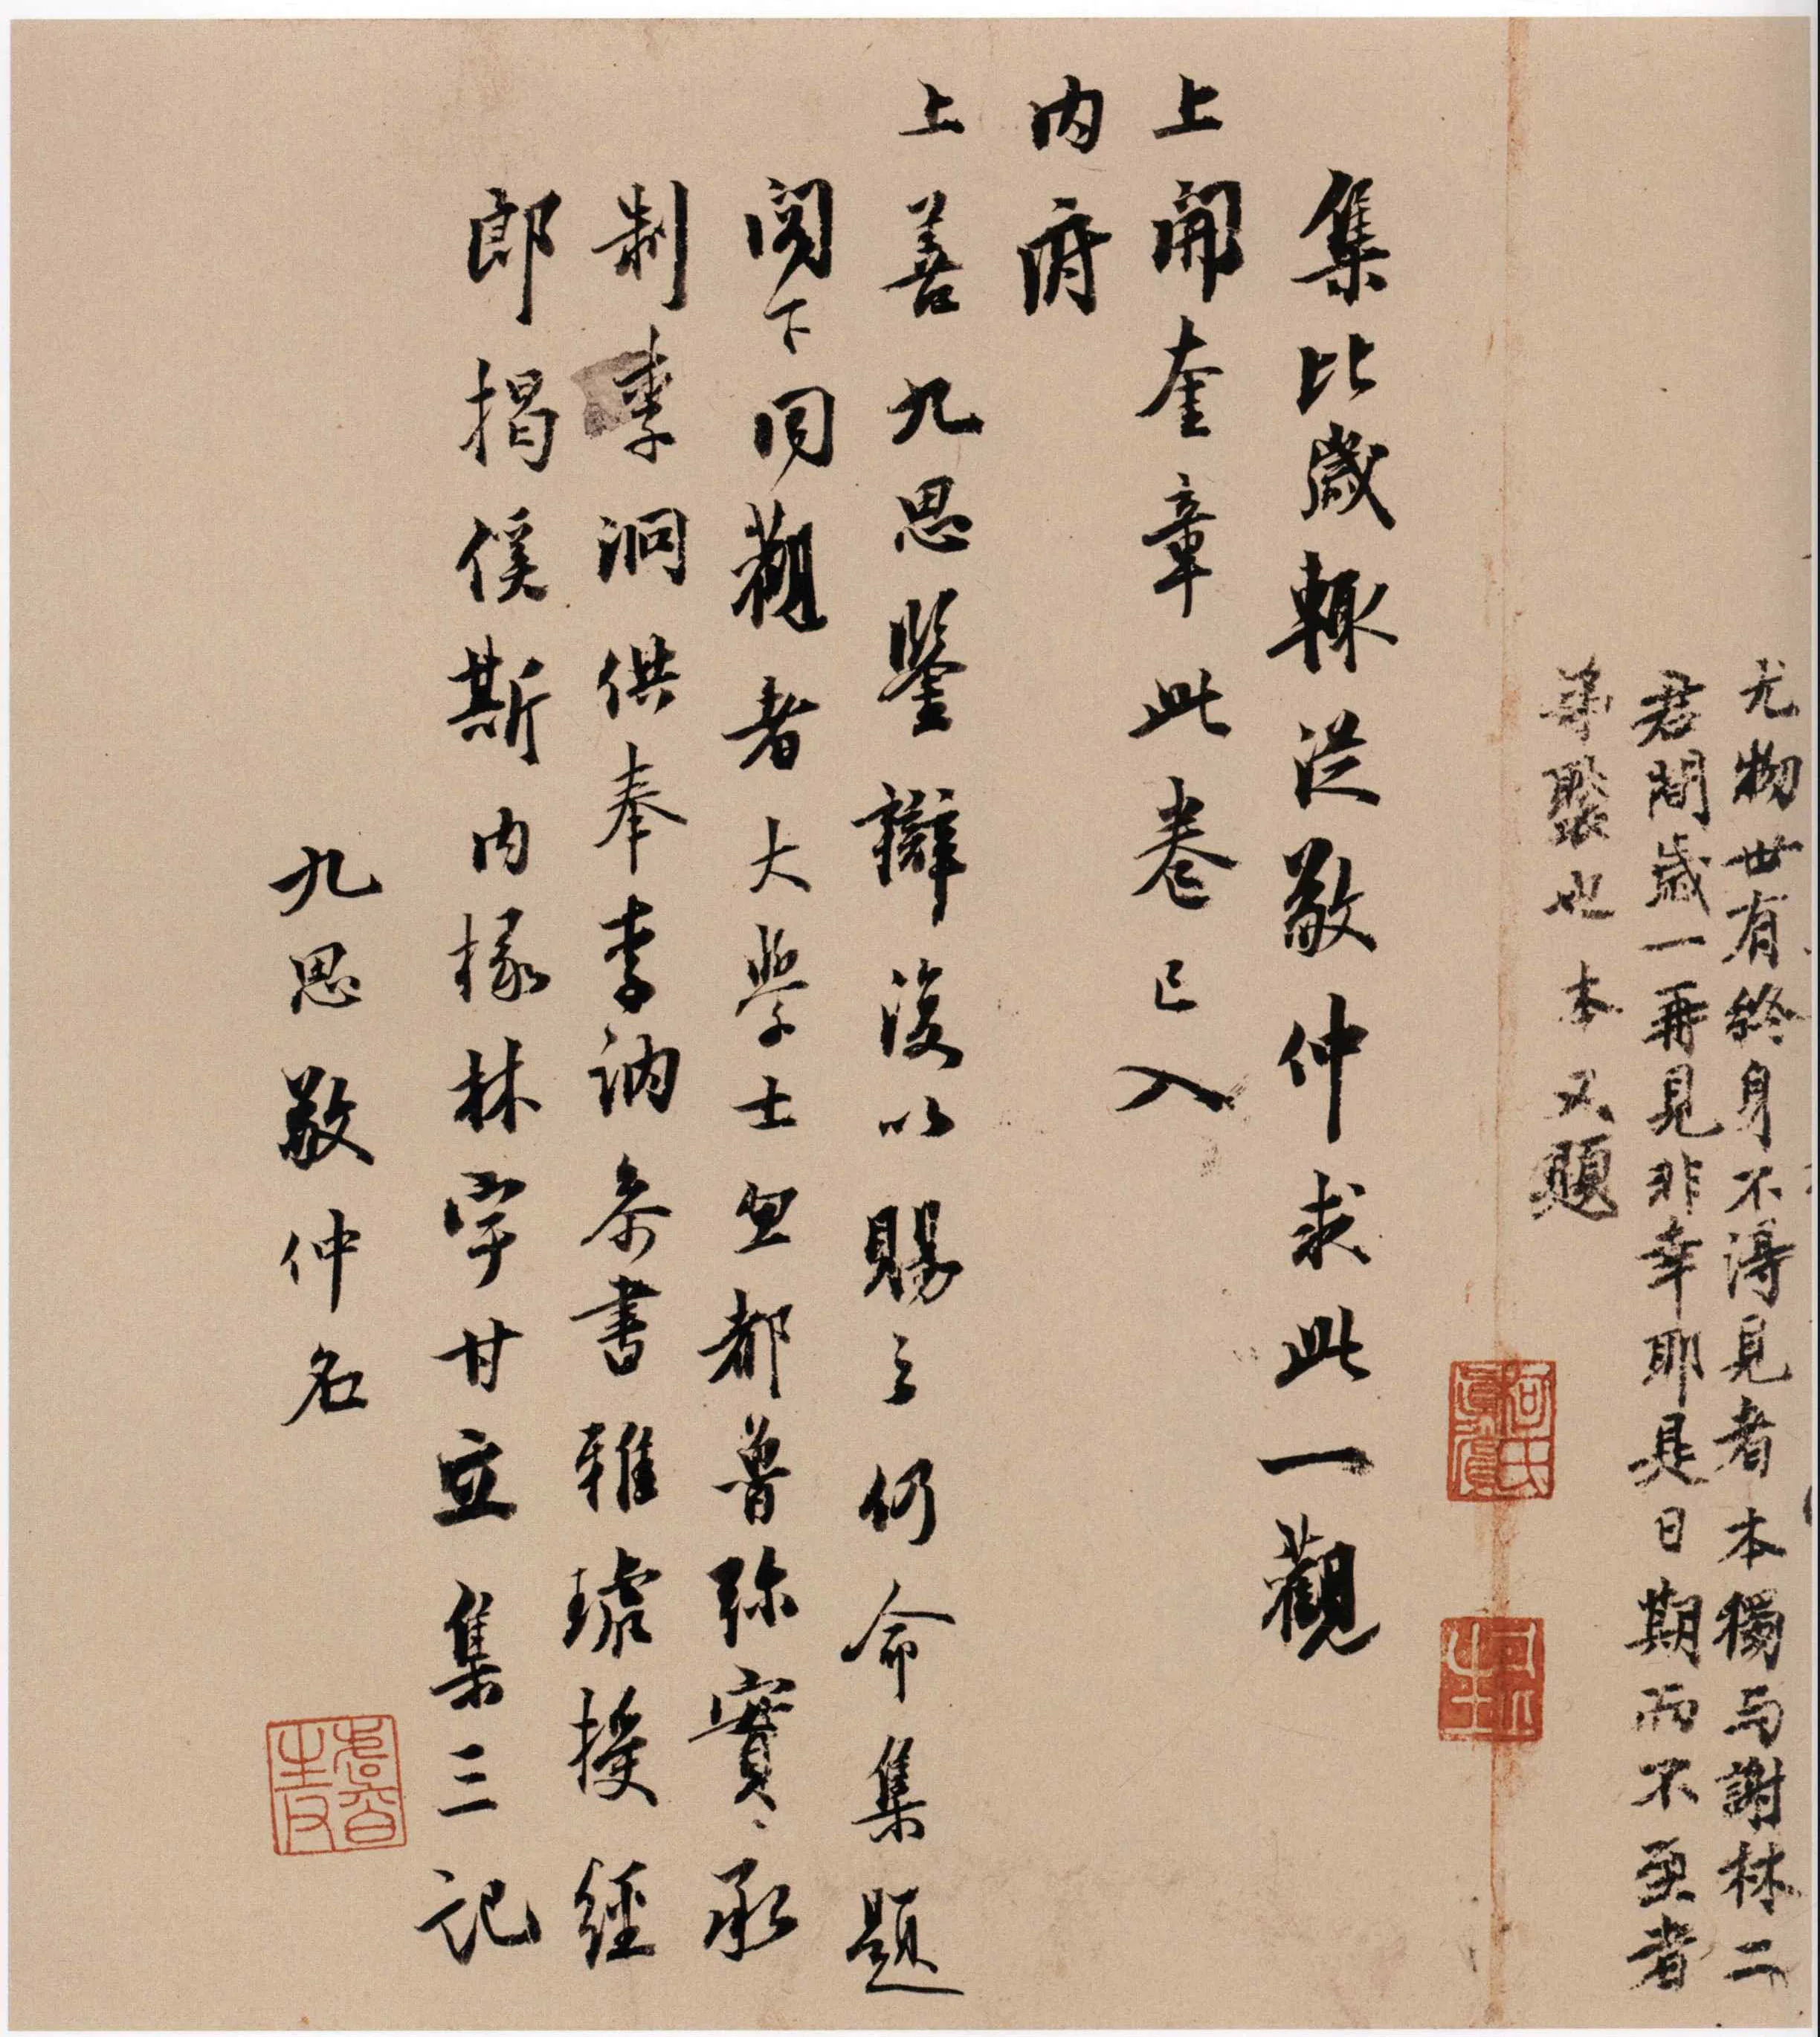 尤物世有終身不得見者本獨与謝林二
君間歲一再見非幸耶是日期而不至者
弟褧也本又題
集比歲輒從敬仲求此一觀
上開奎章此卷已入
内府
上善九思鑒辯復以賜之仍命集題
閣下同觀者大學士忽都魯弥實承
制李泂供奉李訥參書雅琥授經
郎揭傒斯内掾林宇甘立集三記
九思敬仲名
柯氏真賞